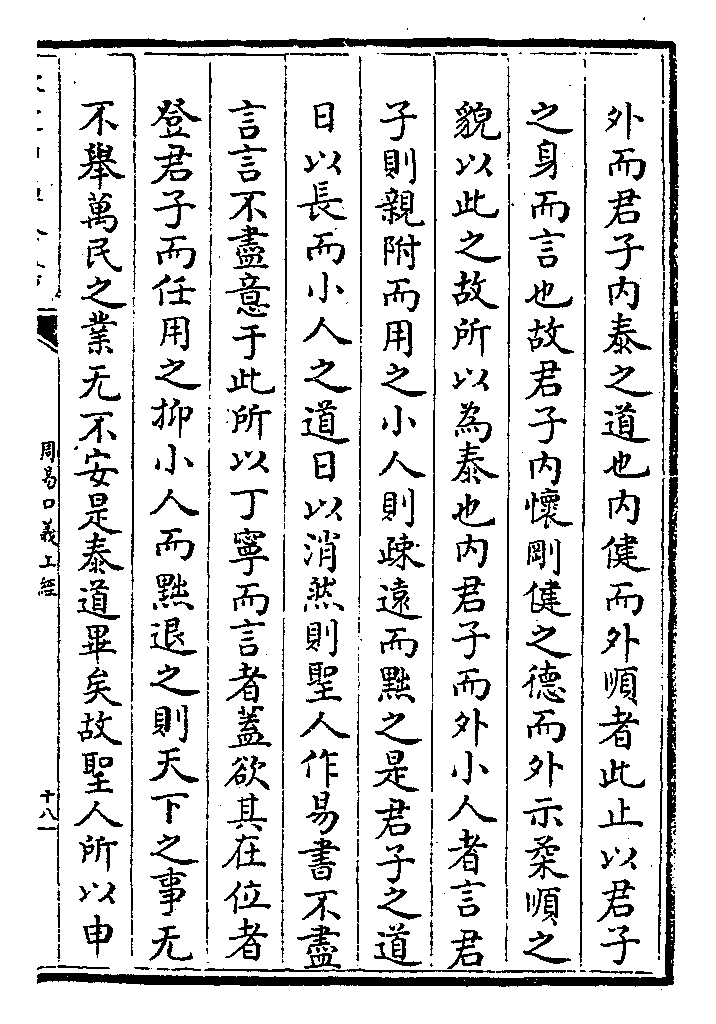 外而君子内泰之道也内健而外順者此止以君子
之身而言也故君子内懷剛健之德而外示柔順之
貌以此之故所以為泰也内君子而外小人者言君
子則親附而用之小人則疎遠而黜之是君子之道
日以長而小人之道日以消然則聖人作易書不盡
言言不盡意于此所以丁寧而言者蓋欲其在位者
登君子而任用之抑小人而黜退之則天下之事无
不舉萬民之業无不安是泰道畢矣故聖人所以申
周易口義上經
十八